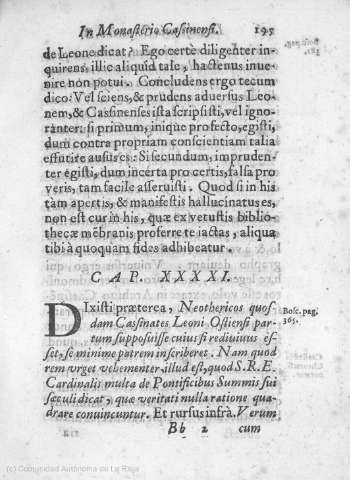 In Monasterio Cassinensi. 195
de Leone dicat? Ego certè diligenter in-
quirens, illic aliquid tale, hactenus inue-
nire non potui. Concludens ergo tecum
dico: Vel sciens, & prudens aduersus Leo-
nem, & Cassinenses ista scripsisti, vel igno-
ranter: si primum, inique profecto, egisti,
dum contra propriam conscientiam talia
effutire ausus es: Si secundum, impruden-
ter egisti, dum incerta pro certis, falsa pro
veris, tam facile asseruisti. Quod si in his
tam apertis, & manifestis hallucinatus es,
non est cur in his, quæ ex vetustis biblio-
thecæ mẽbranis proferre te iactas, aliqua
tibi à quoquam fides adhibeatur.
CAP. XXXXI.
DIxisti præterea, Neothericos quos-
dam Cassinates Leoni Ostiensi par-
tum supposuisse cuius si rediuiuus es-
set, se minime patrem inscriberet. Nam quod
rem vrget vehementer, illud est, quod S. R. E.
Cardinalis multa de Pontificibus Summis sui
sæculi dicat, quæ veritati nulla ratione qua-
drare conuincuntur. Et rursus infrà. Verum
Bosc. pag.
365.
Bb 2 cum
(c) Comunidad Autónoma de La Rioja